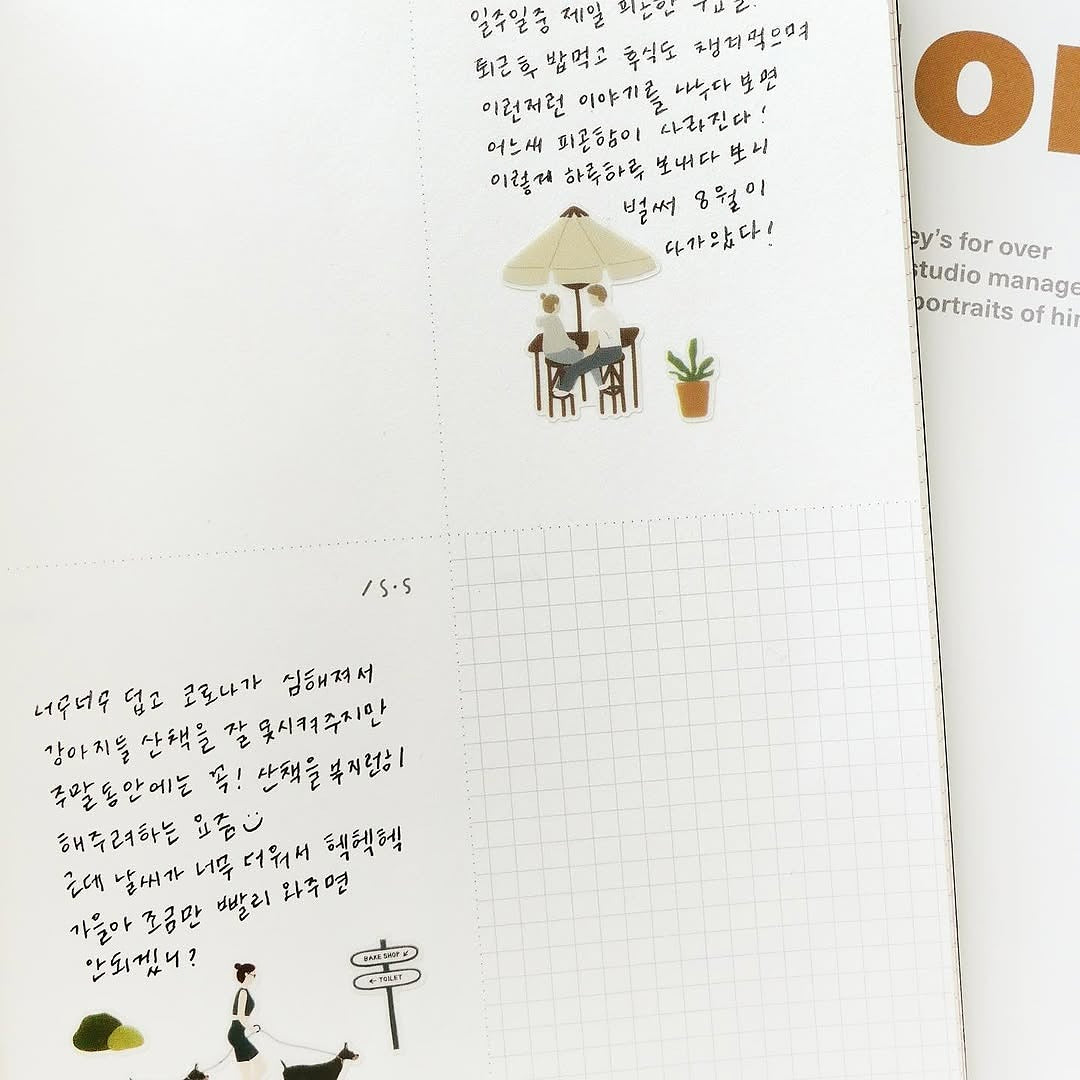 일주일중 제일 피곤한
퇴근후 밥먹고 후식도 챙겨먹으며
이런저런 이야기를 나누다 보면
어느새 피곤함이 사라진다!
이렇게 하루하루 보내다 보니
벌써 8월이
다가왔다!
/s.s
너무너무 덥고 코로나가 심해져서
강아지들 산책을 잘 못시켜주지만
주말동안에는 꼭! 산책을 부지런히
해주려하는 요즘
근데 날씨가 너무 더워서 헥헥헥
가을아 조금만 빨리 와주면
안되겠니?
BAKE SHOP ↙
← TOILET
ey's for over
studio manage
portraits of hi